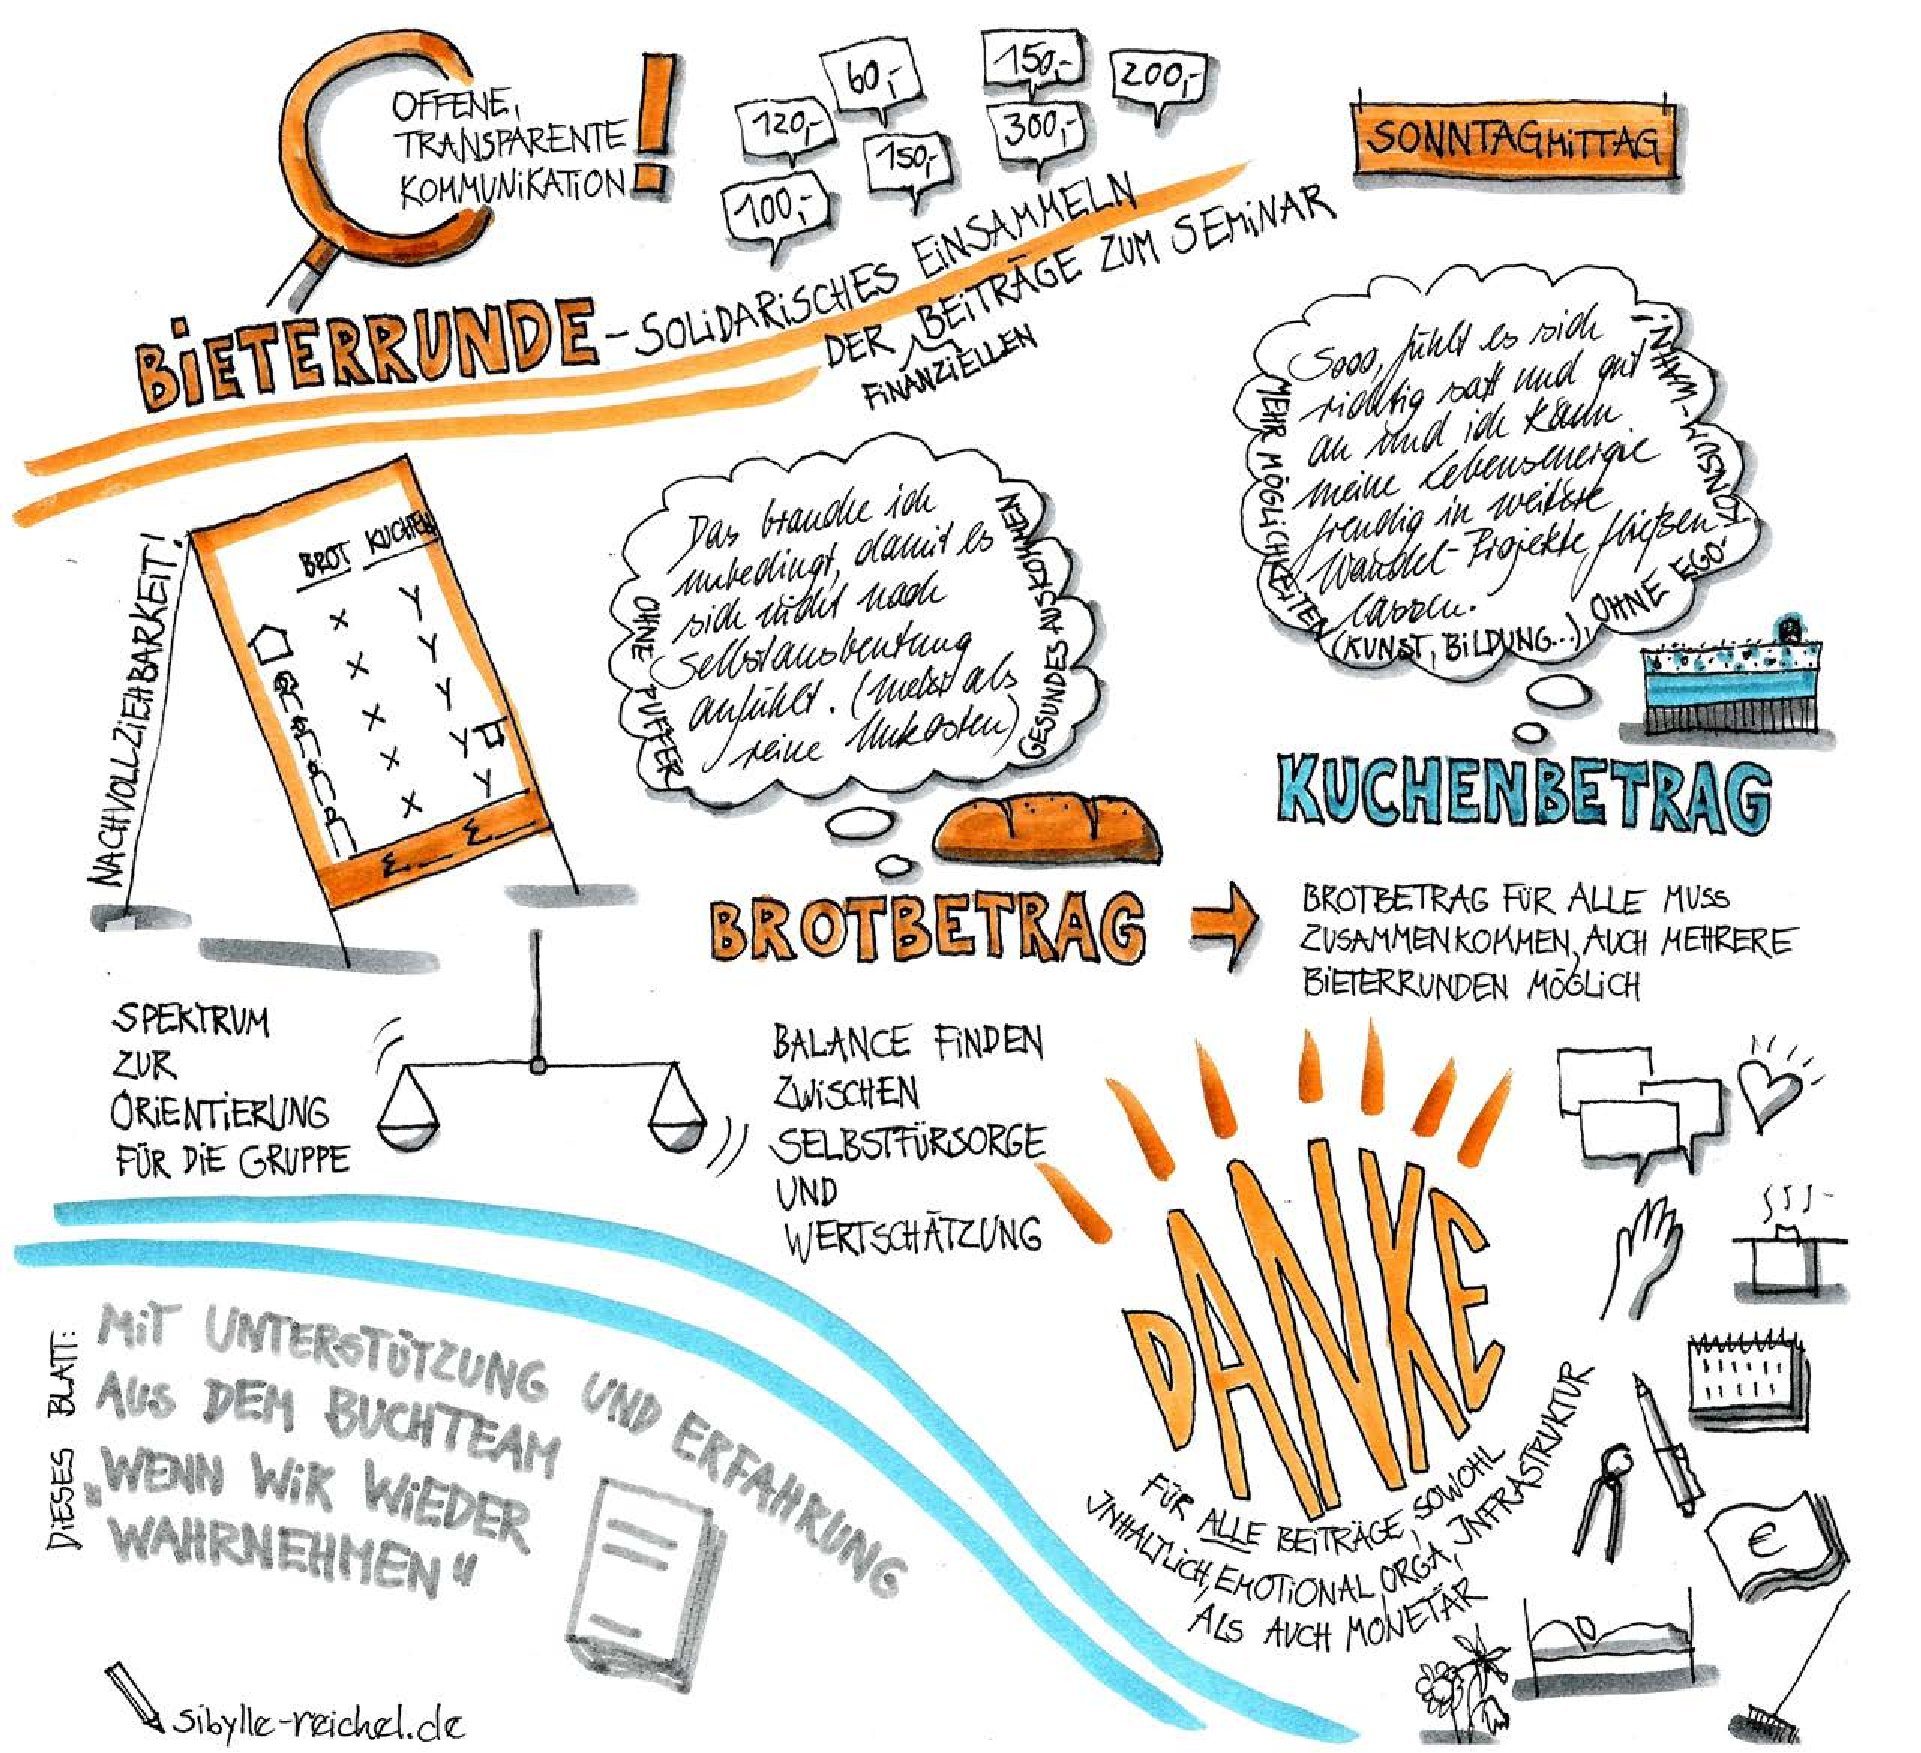 OFFENE,
TRANSPARENTE
KOMMUNIKATION!
120,-
60,-
150,-
200,-
100,-
150,-
300,-
SONNTAGMITTAG
BIETERRUNDE - SOLIDARISCHES EINSAMMELN
DER BEITRÄGE ZUM SEMINAR
FINANZIELLEN
NACHVOLLZIEHBARKEIT!
BROT KUCHEN
X Y
X Y
X Y
X Y
X Y
Σ Σ
Das brauche ich
unbedingt, damit es
sich nicht nach
Selbstausbeutung
anfühlt. (meist als
reine Unkosten)
OHNE PUFFER
GESUNDES AUSKOMMEN
BROTBETRAG
Sooo, fühlt es sich
richtig satt und gut
an und ich kann
meine Lebensenergie
freudig in weitere
Wandel-Projekte fließen
lassen.
MEHR MÖGLICHKEITEN
(KUNST, BILDUNG...), OHNE EGO-
KONSUM-WAHN!
KUCHENBETRAG
BROTBETRAG FÜR ALLE MUSS
ZUSAMMENKOMMEN, AUCH MEHRERE
BIETERRUNDEN MÖGLICH
SPEKTRUM
ZUR
ORIENTIERUNG
FÜR DIE GRUPPE
BALANCE FINDEN
ZWISCHEN
SELBSTFÜRSORGE
UND
WERTSCHÄTZUNG
DANKE
FÜR ALLE BEITRÄGE, SOWOHL
INHALTLICH, EMOTIONAL, ORGA, INFRASTRUKTUR
ALS AUCH MONETÄR
€
DIESES BLATT:
MIT UNTERSTÜTZUNG UND ERFAHRUNG
AUS DEM BUCHTEAM
"WENN WIR WIEDER
WAHRNEHMEN"
sibylle-reichel.de